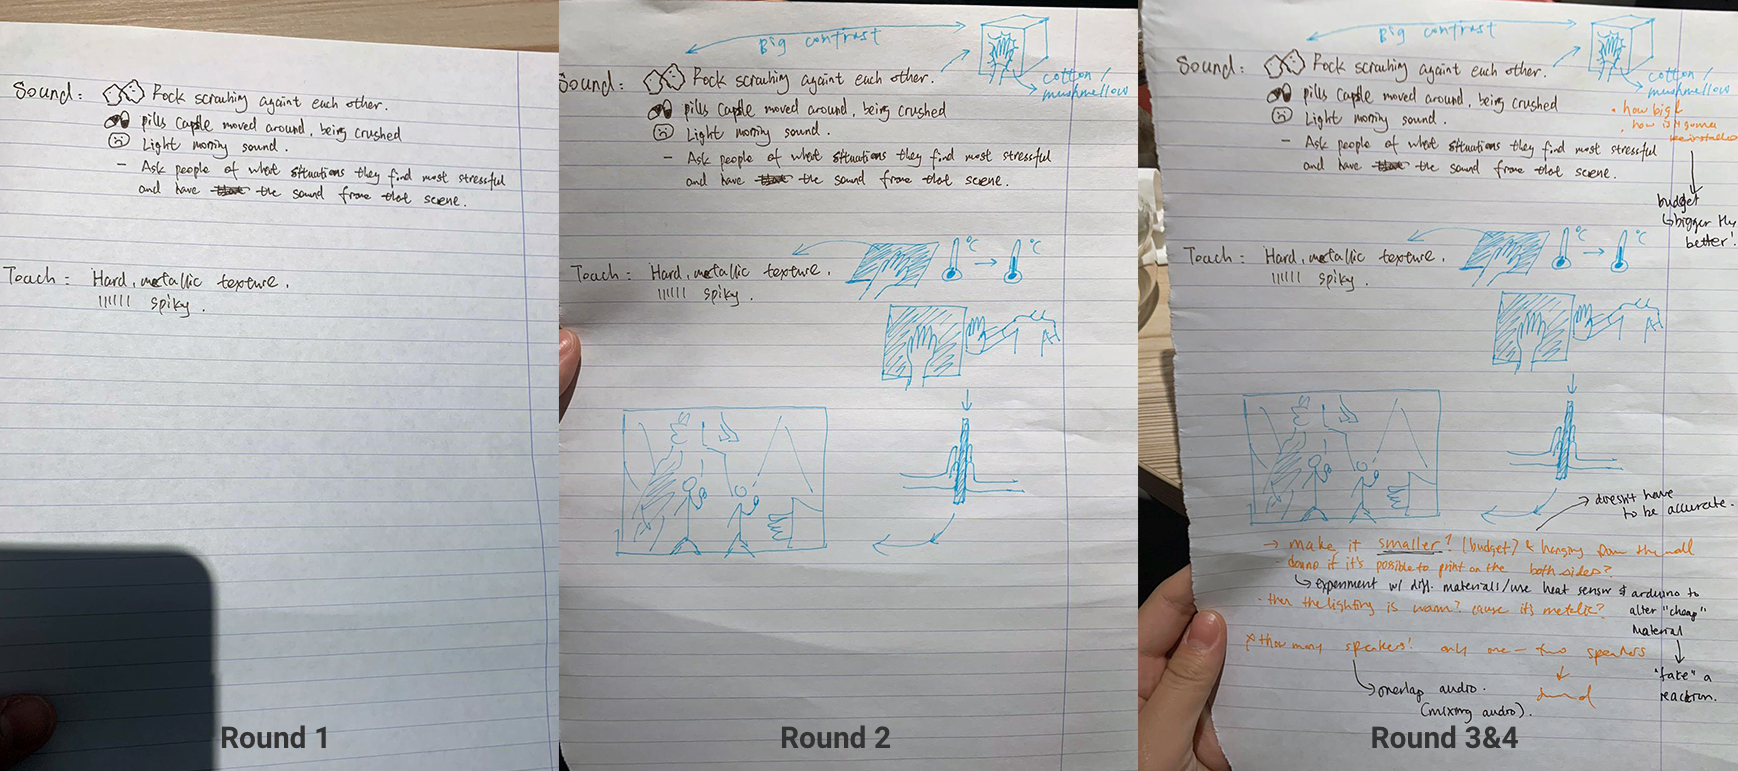 Sound: Rock scraching againt each other.
pills Caplle moved around, being crushed
Light moning sound.
- Ask people of what situations they find most stressful
and have the sound from that scene.
Touch: Hard, metallic texture.
spiky.
Round 1
Big contrast
Sound: Rock scraching againt each other.
cotton /
mushmellow
pills Caplle moved around, being crushed
Light moning sound.
- Ask people of what situations they find most stressful
and have the sound from that scene.
°C → °C
Touch: Hard, metallic texture.
spiky.
Round 2
Big contrast
Sound: Rock scraching againt each other.
cotton /
mushmellow
pills Caplle moved around, being crushed
• how big?
Light moning sound.
• how is it gonna
be installed
- Ask people of what situations they find most stressful
and have the sound from that scene.
budget
↳ bigger the
better!
°C → °C
Touch: Hard, metallic texture.
spiky.
→ doesn't have
to be accurate.
→ make it smaller? (budget) & hanging from the wall
dunno if it's possible to print on the both sides?
↳ experiment w/ diff. materials/use heat sensor & arduino to
alter "cheap"
material
• then the lighting is warm? cause it's metalic?
* how many speakers? only one - two speakers
sound
"fake" a
reaction.
overlap audio.
(mixing audio).
Round 3&4